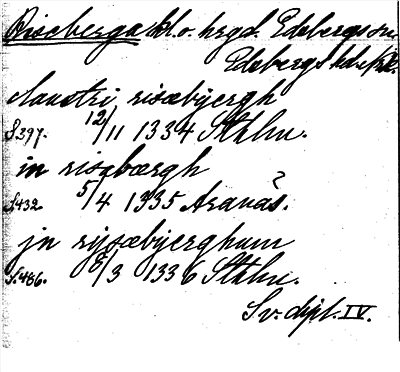 Riseberga kl. o. hrgd. Edsbergs sn.
Edsbergs hd.
claustri risæbyergh
S. 397. 12/11 1334 Sthlm.
in risabærgh
S. 432. 5/4 1335 Aranäs.
jn rysæbyerghum
S. 486. 8/3 1336 Sthlm.
Sv. dipl. IV.